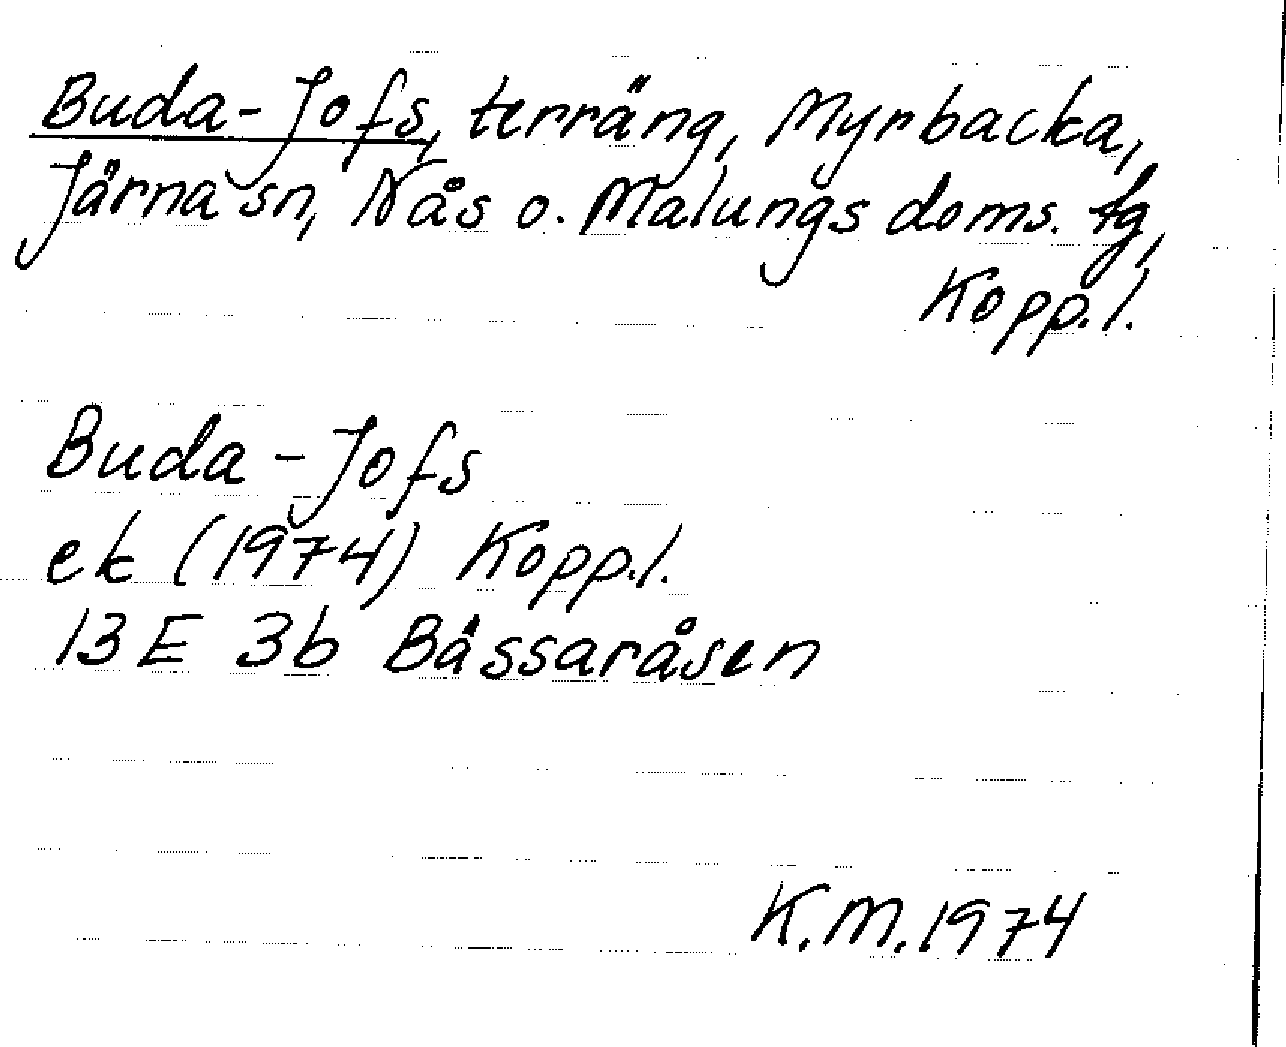 Buda-Jofs, terräng, Myrbacka,
Järna sn, Nås o. Malungs doms. tg,
Kopp.l.
Buda-Jofs
ek (1974) Kopp.l.
13 E 3b Bässaråsen
K.M. 1974